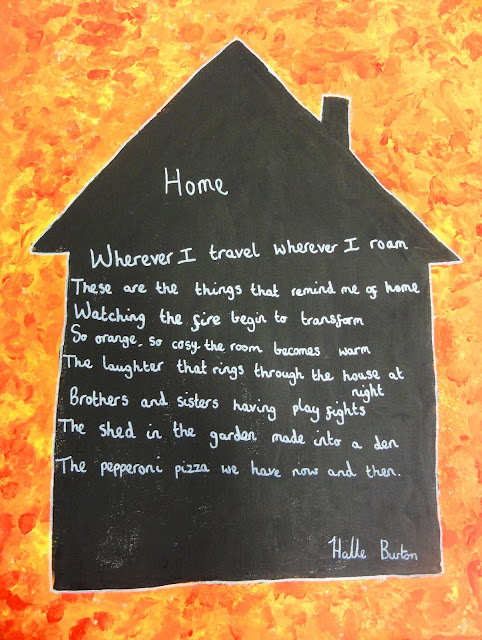 Home
Wherever I travel wherever I roam
These are the things that remind me of home
Watching the fire begin to transform
So orange, so cosy the room becomes warm
The laughter that rings through the house at night
Brothers and sisters having play fights
The shed in the garden made into a den
The pepperoni pizza we have now and then.
Halle Burton